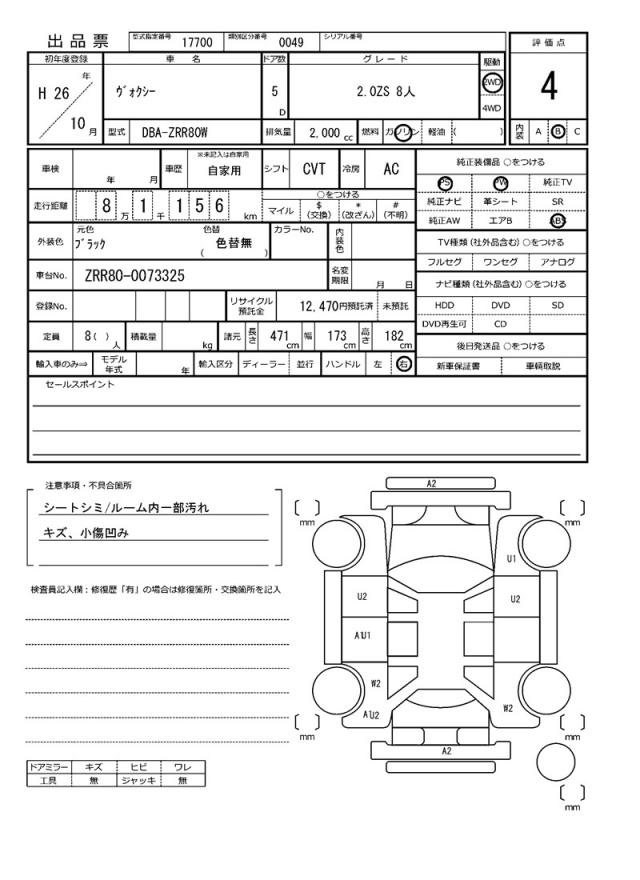 出品票 型式指定番号 17700 類別区分番号 0049 シリアル番号
評価点
4
内装 A B C
初年度登録 車名 ドア数 グレード 駆動
H 26 年 10 月
ヴォクシー 5 D 2.0ZS 8人 2WD
4WD
型式 DBA-ZRR80W 排気量 2,000 cc 燃料 ガソリン 軽油 ( )
車検 年 月 車歴 ※未記入は自家用 自家用 シフト CVT 冷房 AC
走行距離 8 万 1 千 1 5 6 km
○をつける
マイル $ (交換) * (改ざん) # (不明)
外装色 元色 ブラック 色替 色替無 ( ) カラーNo. 内装色
車台No. ZRR80-0073325 名変期限 月 日
登録No. リサイクル預託金 12,470円預託済 未預託
定員 8( ) 人 積載量 kg 諸元 長さ 471 cm 幅 173 cm 高さ 182 cm
輸入車のみ⇒ モデル年式 年 輸入区分 ディーラー 並行 ハンドル 左 右
純正装備品 ○をつける
PS PW 純正TV
純正ナビ 革シート SR
純正AW エアB ABS
TV種類 (社外品含む) ○をつける
フルセグ ワンセグ アナログ
ナビ種類 (社外品含む) ○をつける
HDD DVD SD
DVD再生可 CD
後日発送品 ○をつける
新車保証書 車輌取説
セールスポイント
注意事項・不具合箇所
シートシミ/ルーム内一部汚れ
キズ、小傷凹み
検査員記入欄：修復歴「有」の場合は修復箇所・交換箇所を記入
ドアミラー キズ ヒビ ワレ
工具 無 ジャッキ 無
A2
mm mm
U1
U2 U2
A1U1
W2
A1U2 W2
mm mm
A2
mm